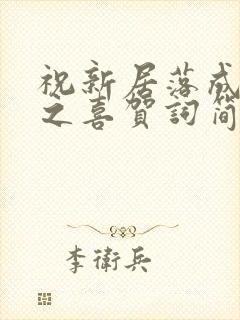 祝新居落成
之喜贺詞简
李衛兵